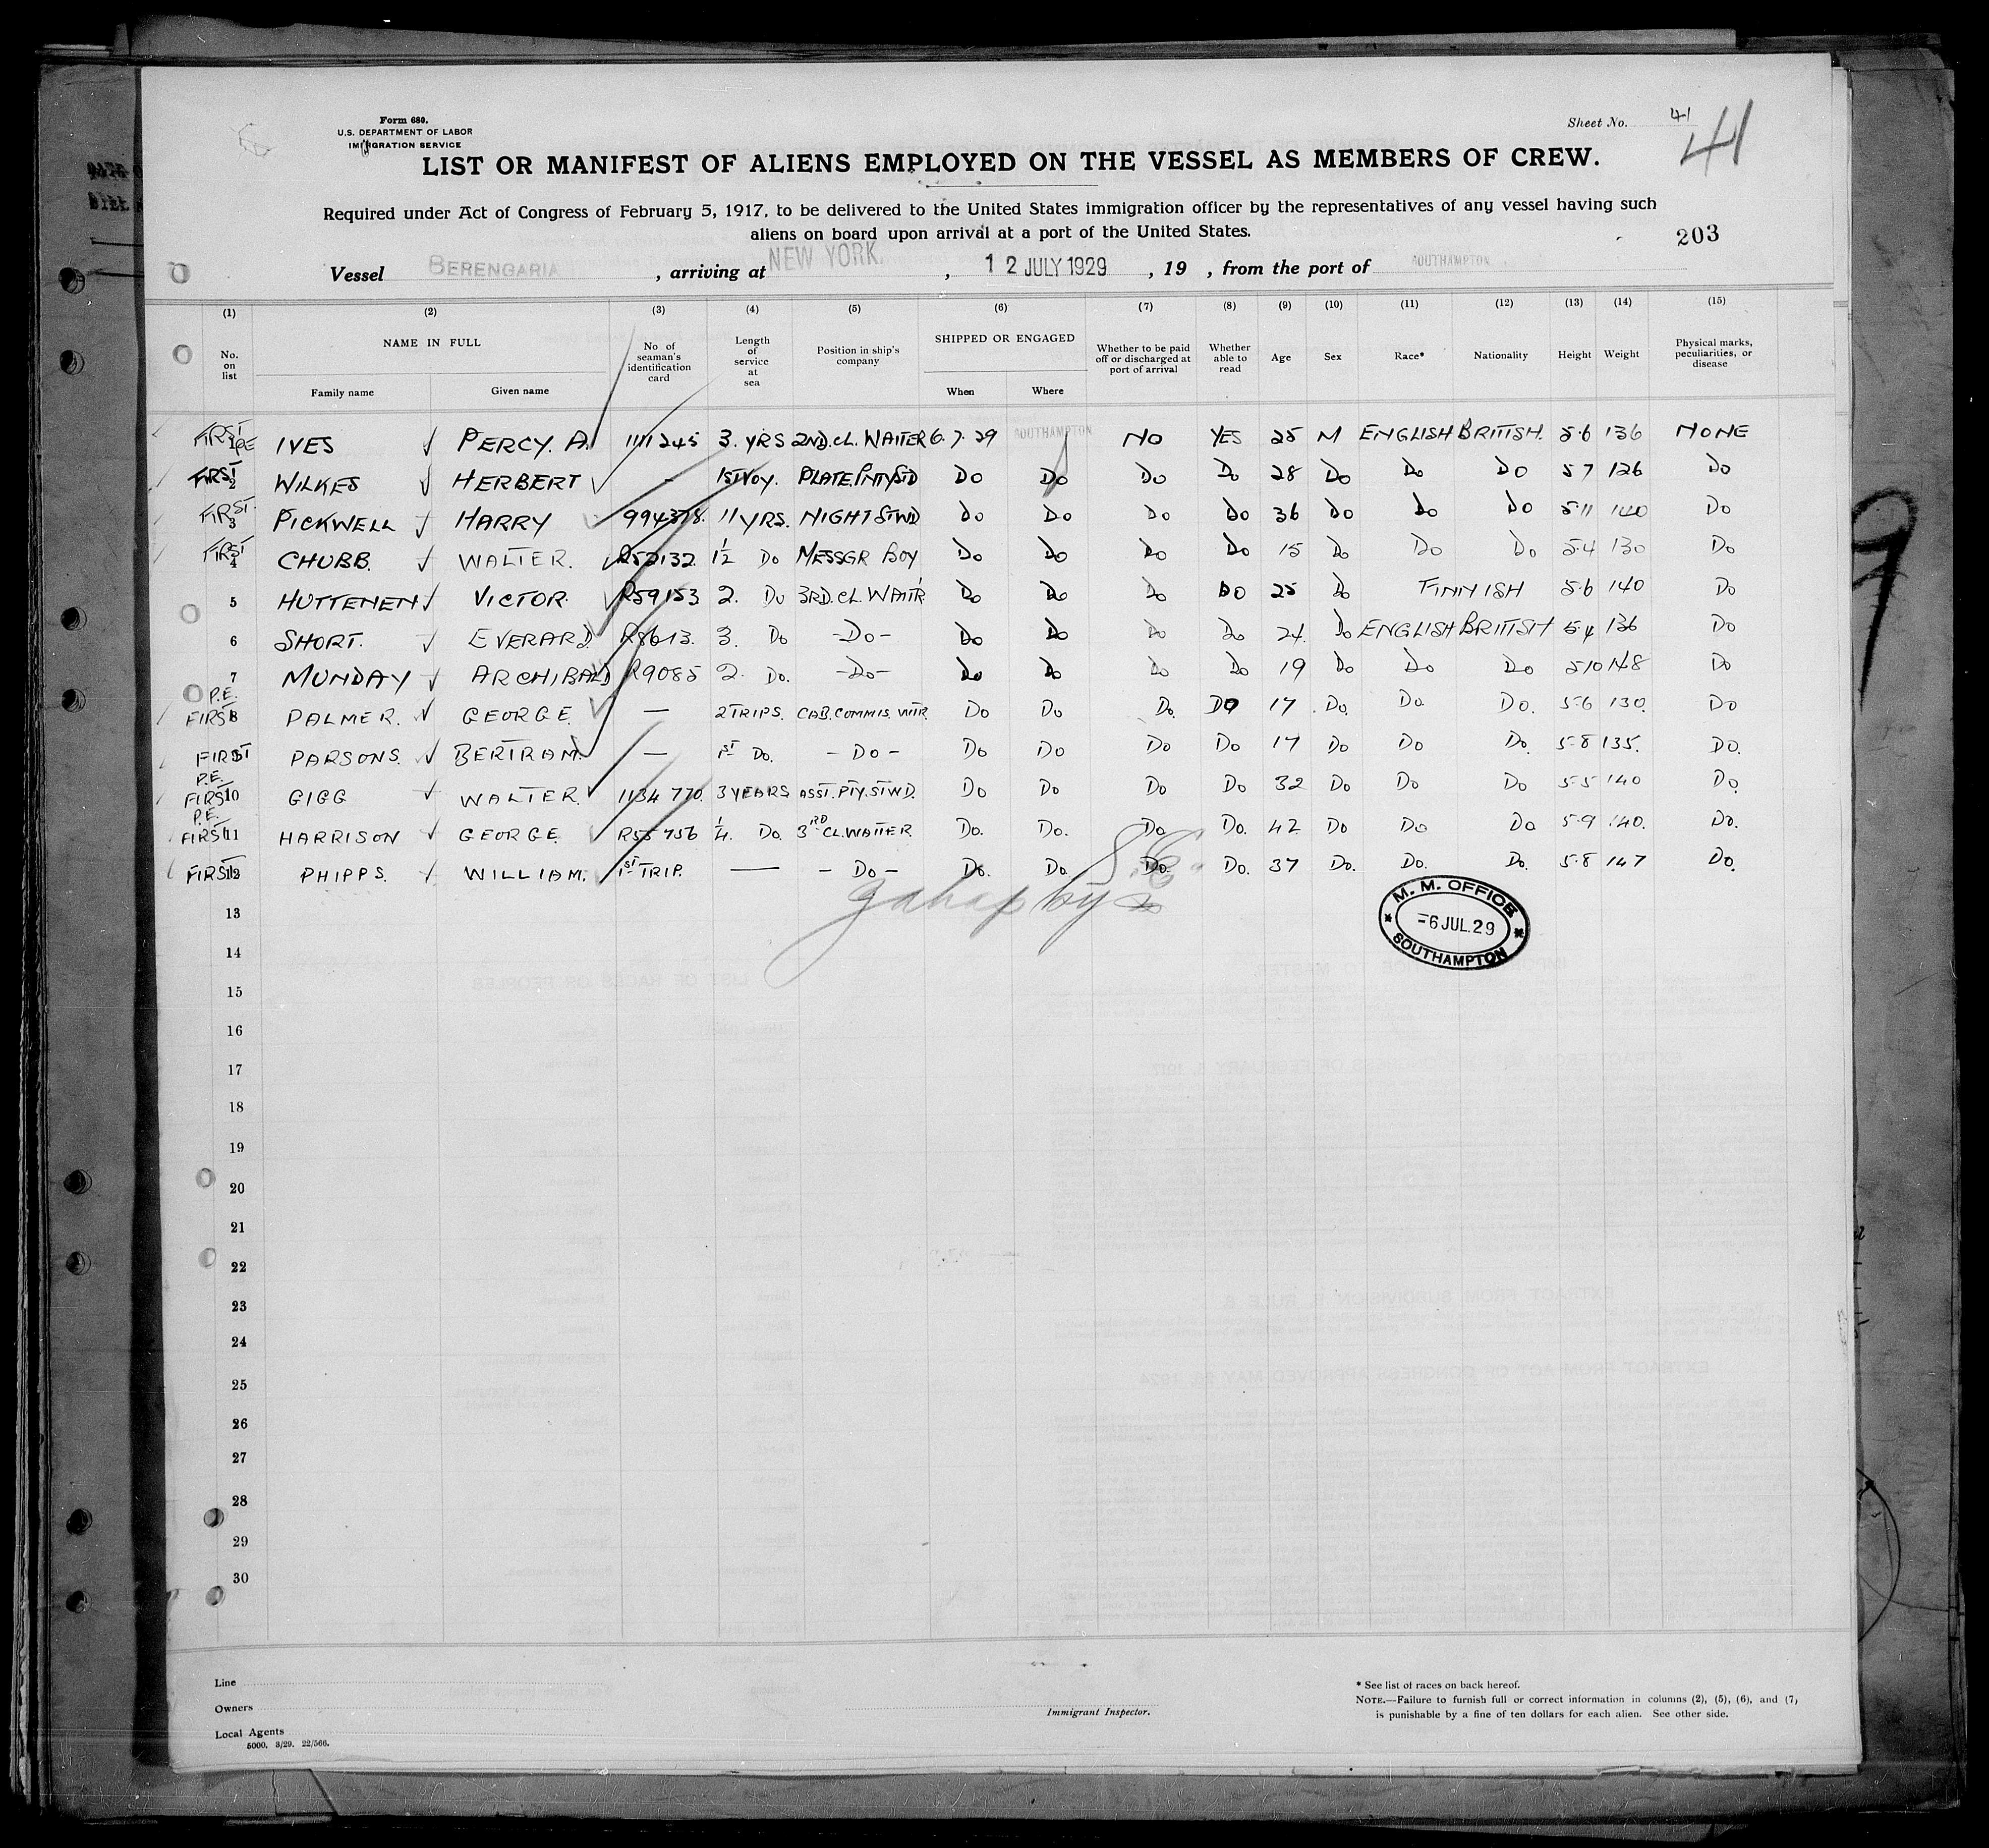 Form 680.
U.S. DEPARTMENT OF LABOR
IMMIGRATION SERVICE
Sheet No. 41
41
LIST OR MANIFEST OF ALIENS EMPLOYED ON THE VESSEL AS MEMBERS OF CREW.
Required under Act of Congress of February 5, 1917, to be delivered to the United States immigration officer by the representatives of any vessel having such
aliens on board upon arrival at a port of the United States.
203
Vessel BERENGARIA , arriving at NEW YORK. , 12 JULY 1929 , 19 , from the port of SOUTHAMPTON
(1) (2) (3) (4) (5) (6) (7) (8) (9) (10) (11) (12) (13) (14) (15)
No. on list NAME IN FULL Family name Given name No. of seaman's identification card Length of service at sea Position in ship's company SHIPPED OR ENGAGED When Where Whether to be paid off or discharged at port of arrival Whether able to read Age Sex Race* Nationality Height Weight Physical marks, peculiarities, or disease
FIRST 1 PE IVES PERCY. A. 1111245 3. YRS 2ND.CL. WAITER 6.7.29 SOUTHAMPTON NO YES 25 M ENGLISH BRITISH. 5.6 136 NONE
FIRST 2 WILKES HERBERT - 1ST VOY. PLATE.PNTY STD DO DO DO DO 28 DO DO DO 5 7 126 DO
FIRST. 3 PICKWELL HARRY 994378. 11 YRS. NIGHT STWD DO DO DO DO 36 DO DO DO 5.11 140 DO
FIRST 4 CHUBB. WALTER. R52132. 1/2 DO MESSGR BOY DO DO DO DO 15 DO DO DO 5.4 130 DO
5 HUTTENEN VICTOR. R59153 2. DO 3RD.CL.WAITR DO DO DO DO 25 DO FINNISH 5.6 140 DO
6 SHORT. EVERARD. R8613. 3. DO -DO- DO DO DO DO 24 DO ENGLISH BRITISH 5.4 136 DO
7 MUNDAY ARCHIBALD R9085 2. DO. -DO- DO DO DO DO 19 DO DO DO 5.10 148 DO
P.E. FIRST 8 PALMER. GEORGE. — 2 TRIPS. CAB.COMMIS. WTR. DO DO DO. DO 17 DO. DO. DO. 5.6 130. DO
FIRST 9 PARSONS. BERTRAM. — 1ST DO. - DO - DO DO DO DO 17 DO DO DO. 5.8 135. DO.
P.E. FIRST 10 GIGG WALTER. 1134 770. 3 YEARS ASST. PTY. STWD. DO DO DO DO 32 DO DO DO 5.5 140 DO.
P.E. FIRST 11 HARRISON GEORGE. R55756 1/4. DO. 3RD CL.WAITER DO. DO. DO DO. 42 DO DO DO 5.9 140. DO.
FIRST 12 PHIPPS. WILLIAM. 1ST TRIP. — - DO - DO. DO. DO. DO. 37 DO. DO. DO. 5.8 147 DO.
13
M. M. OFFICE
-6 JUL. 29
SOUTHAMPTON
14
15
16
17
18
19
20
21
22
23
24
25
26
27
28
29
30
Line
Owners
Local Agents
5000. 3/29. 22/566.
Immigrant Inspector.
* See list of races on back hereof.
NOTE.—Failure to furnish full or correct information in columns (2), (5), (6), and (7,
is punishable by a fine of ten dollars for each alien. See other side.